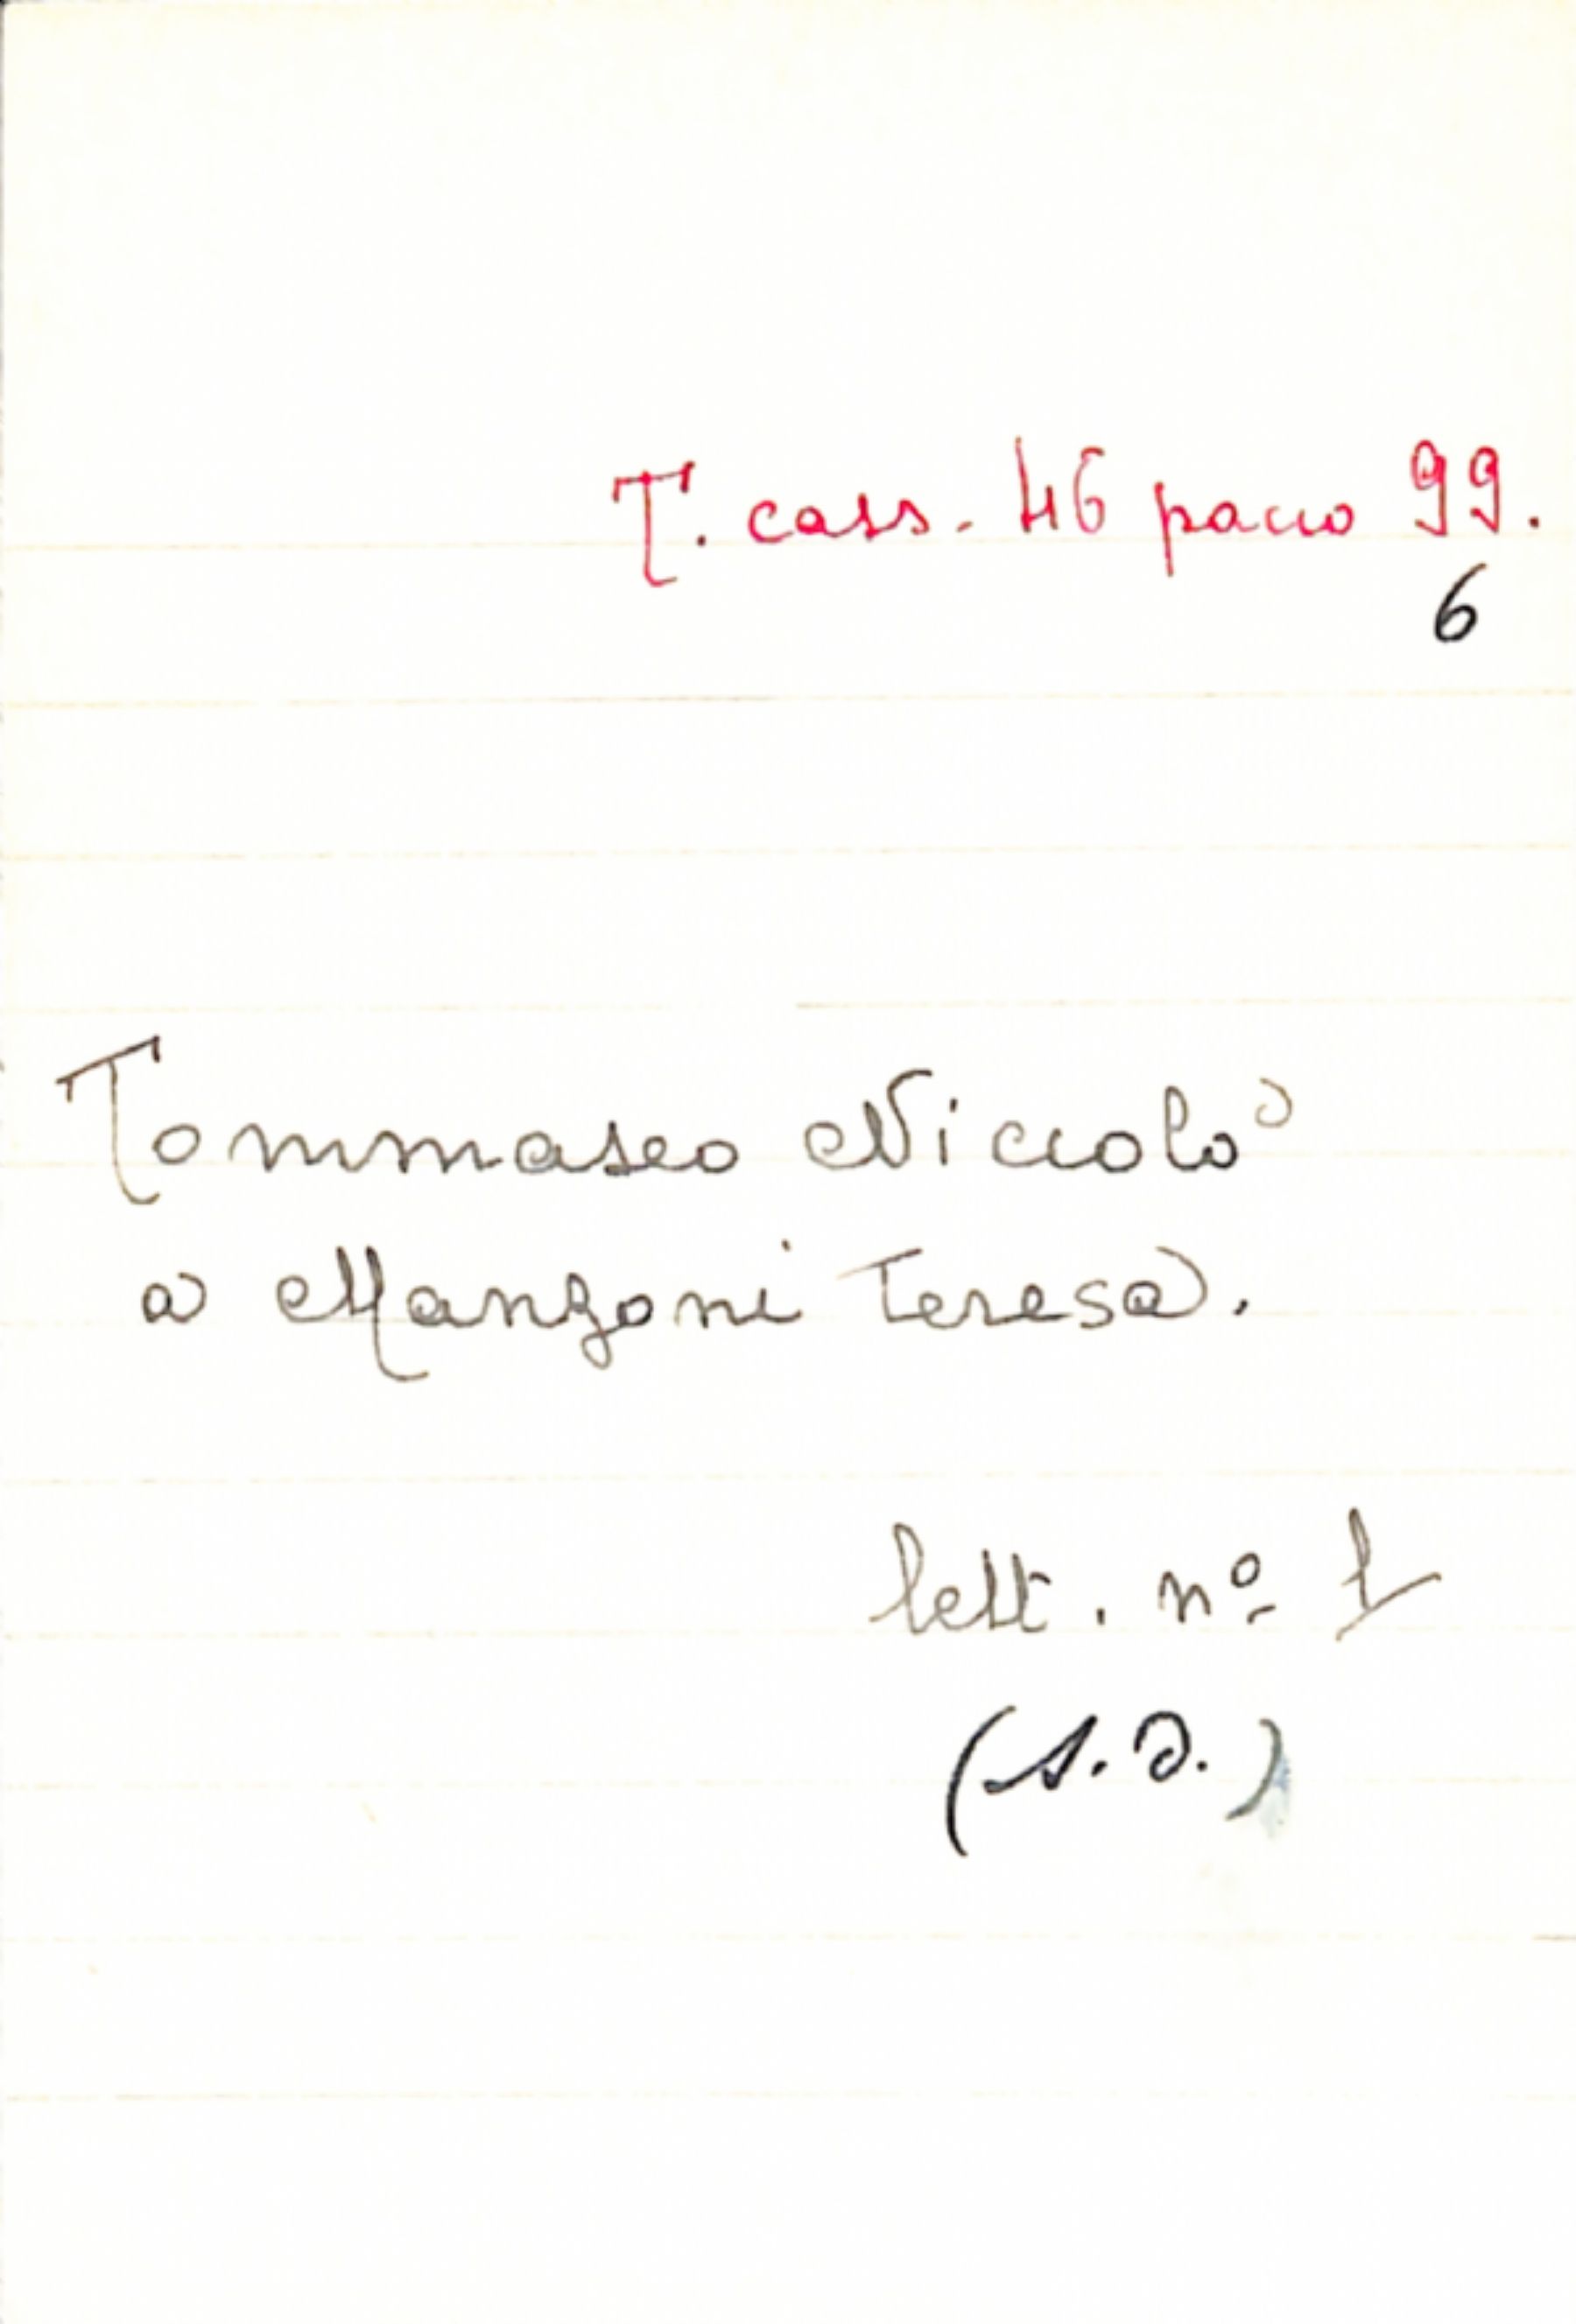 T. cass. 46 pacco 99.
6
Tommaseo Niccolò
a Manzoni Teresa.
lett. nº 1
(s.d.)